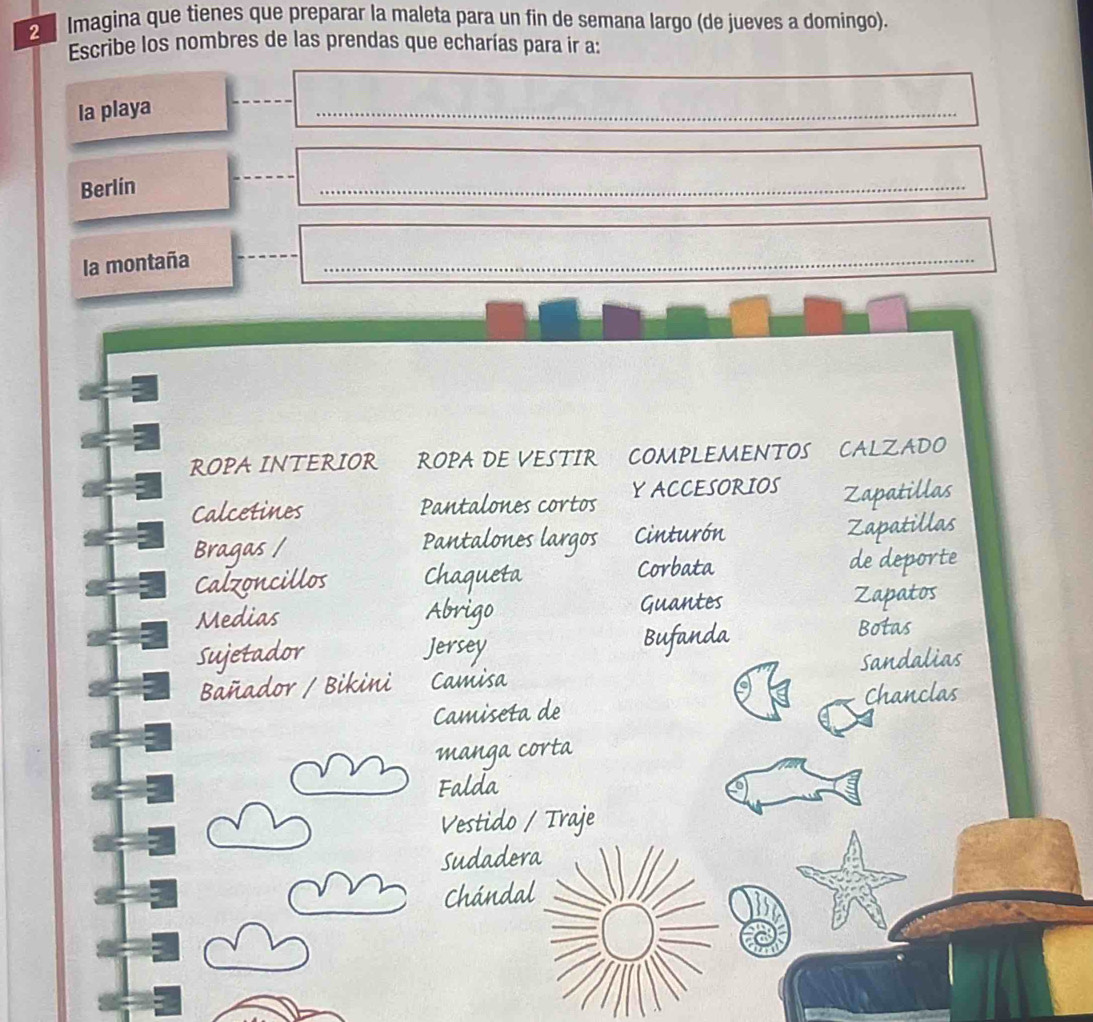 2 Imagina que tienes que preparar la maleta para un fin de semana largo (de jueves a domingo).
Escribe los nombres de las prendas que echarías para ir a:
la playa
Berlín
la montaña
ROPA INTERIOR
Calcetines
Bragas /
Calzoncillos
Medias
Sujetador
Bañador / Bikini
ROPA DE VESTIR
Pantalones cortos
Pantalones largos
Chaqueta
Abrigo
Jersey
Camisa
Camiseta de
manga corta
Falda
Vestido / Traje
Sudadera
Chándal
COMPLEMENTOS
Y ACCESORIOS
Cinturón
Corbata
Guantes
Bufanda
CALZADO
Zapatillas
Zapatillas
de deporte
Zapatos
Botas
Sandalias
Chanclas